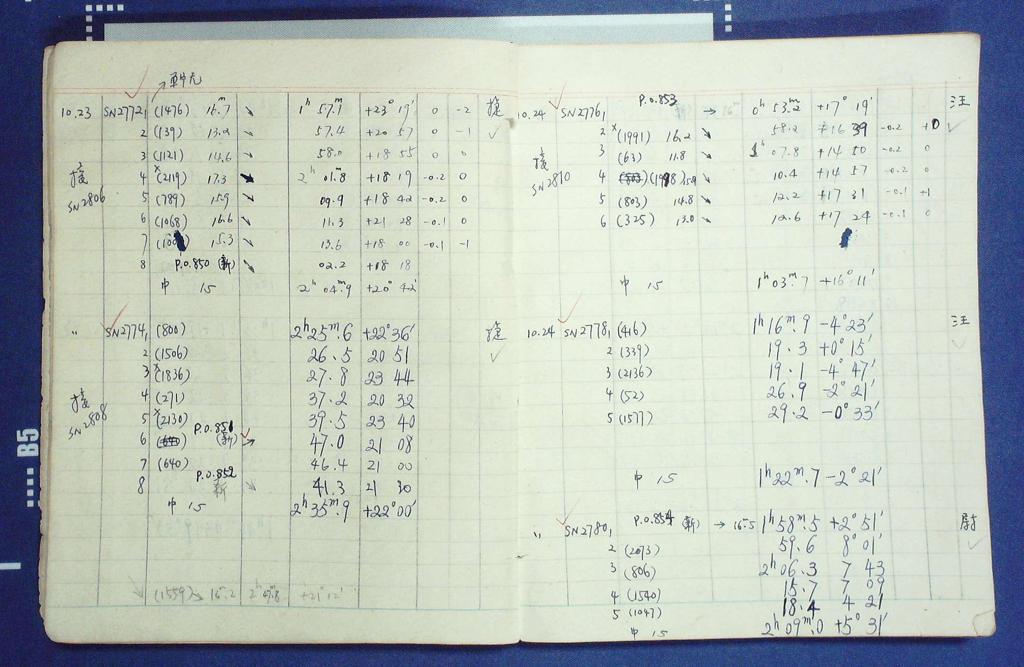 10.23 SN2772, 1 (1476) 15.7 ↘ 1ʰ 57.ᵐ7 +23° 19′ 0 -2
2 (139) 13.2 ↘ 57.4 +20 57 0 -1
3 (1121) 14.6 ↘ 58.0 +18 55 0 0
接 SN2806
4 ˣ(2119) 17.3 ↘ 2ʰ 01.8 +18 19 -0.2 0
5 (789) 15.9 ↘ 09.9 +18 42 -0.2 0
6 (1068) 16.6 ↘ 11.3 +21 28 -0.1 0
7 15.3 ↘ 13.6 +18 00 -0.1 -1
8 P.O.850 (新) ↘ 02.2 +18 18
中 15 2ʰ 04ᵐ.9 +20° 42′
〃 SN2774, 1 (800) 2ʰ25ᵐ.6 +22°36′
2 (1506) 26.5 20 51
3 ˣ(1836) 27.8 23 44
接 SN2808
4 (271) 37.2 20 32
5 ˣ(2130) 39.5 23 40
6 P.O.851 (新) → 47.0 21 08
7 (640) 46.4 21 00
8 P.O.852 新 ↘ 41.3 21 30
中 15 2ʰ35ᵐ.9 +22°00′
(1559) 16.2 2ʰ 07.8 +21°12′
10.24 SN2776, 1 P.O.853 → 0ʰ 53ᵐ.2 +17° 19′ 汪
2 ˣ(1991) 16.2 ↘ 58.2 +16 39 -0.2 +0
3 (63) 11.8 ↘ 1ʰ 07.8 +14 50 -0.2 0
接 SN2810
4 (1998) 10.4 +14 57 -0.2 0
5 (803) 14.8 ↘ 12.2 +17 31 -0.1 +1
6 (325) 13.0 ↘ 12.6 +17 24 -0.1 0
中 15 1ʰ03ᵐ.7 +16°11′
10.24 SN2778, 1 (416) 1ʰ16ᵐ.9 -4°23′ 汪
2 (339) 19.3 +0°15′
3 (2136) 19.1 -4°47′
4 (52) 26.9 -2°21′
5 (1577) 29.2 -0°33′
中 15 1ʰ22ᵐ.7 -2°21′
〃 SN2780, 1 P.O.854 (新) → 16.5 1ʰ58ᵐ.5 +2°51′ 尉
2 (2073) 59.6 8°01′
3 (806) 2ʰ06.3 7 43
4 (1540) 15.7 7 09
5 (1047) 18.4 4 21
中 15 2ʰ09ᵐ.0 +5°31′
B5